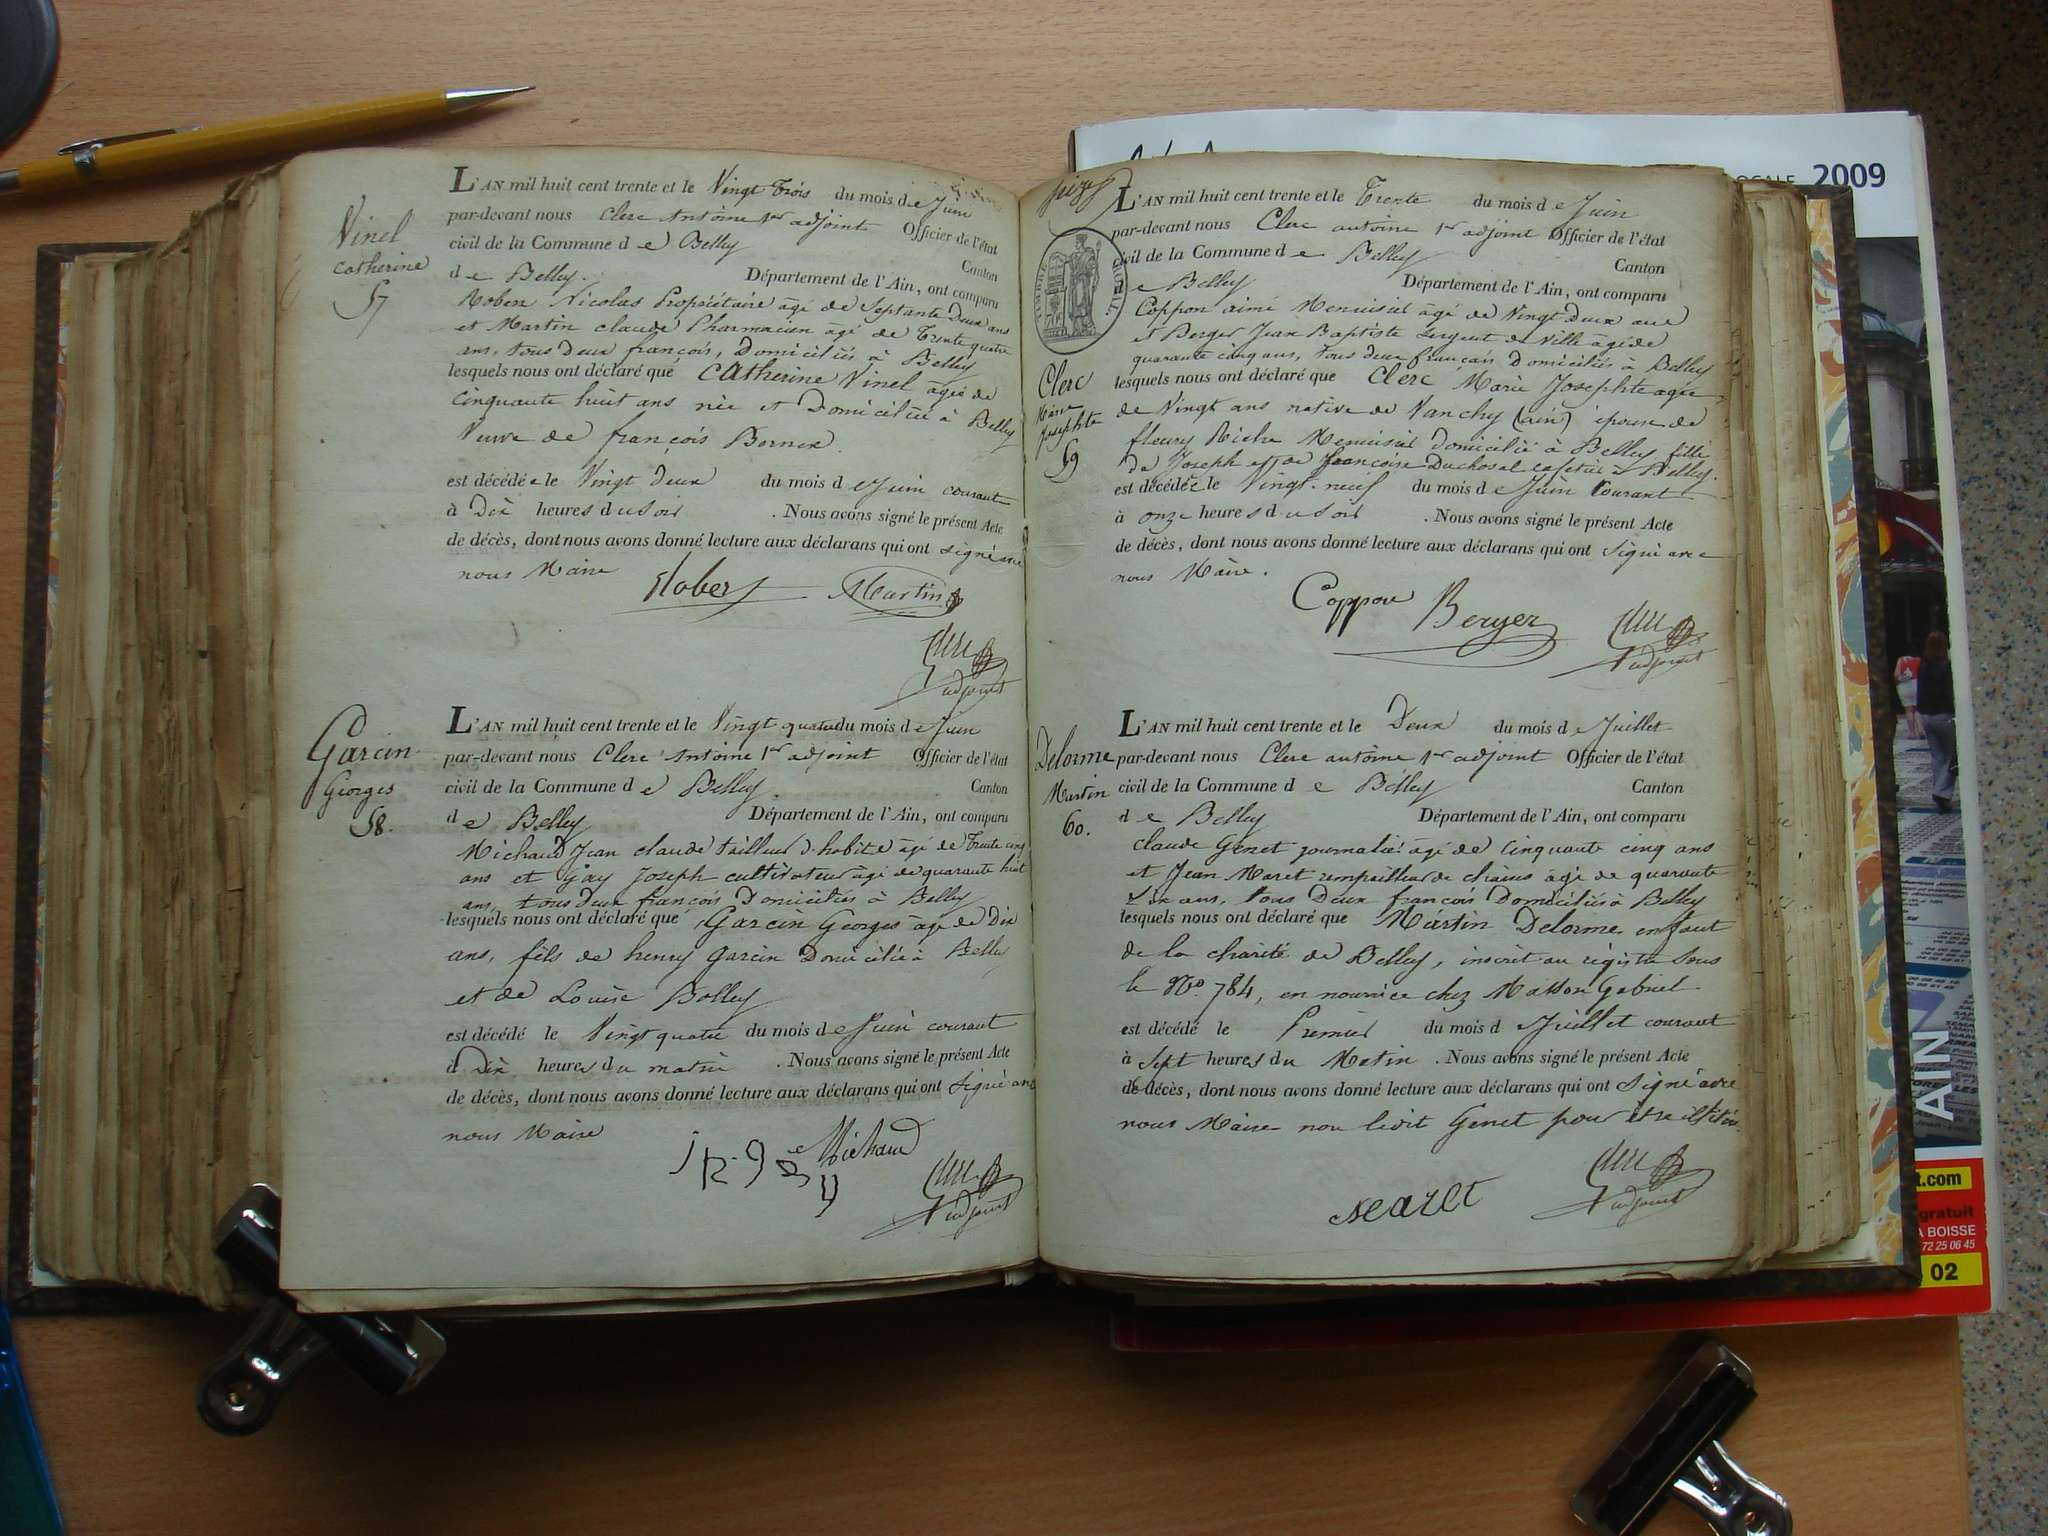 Vinel
Catherine
57
L'AN mil huit cent trente et le Vingt Trois du mois de Juin
par-devant nous Clerc Antoine 1er adjoint Officier de l'état
civil de la Commune de Belley Canton
de Belley. Département de l'Ain, ont comparu
Nicolas Propriétaire âgé de Septante Deux ans
et Martin claude Pharmacien âgé de Trente quatre
ans, tous Deux françois, Domiciliés à Belley
lesquels nous ont déclaré que Catherine Vinel âgée de
Cinquante huit ans née et Domiciliée à Belley
Veuve de françois
est décédée le Vingt Deux du mois de Juin courant
à Dix heures du soir . Nous avons signé le présent Acte
de décès, dont nous avons donné lecture aux déclarans qui ont signé avec
nous Maire
Martin
Clerc
adjoint
Garcin
Georges
58.
L'AN mil huit cent trente et le Vingt quatre du mois de Juin
par-devant nous Clerc Antoine 1er adjoint Officier de l'état
civil de la Commune de Belley. Canton
de Belley Département de l'Ain, ont comparu
Michaud Jean claude tailleur d'habits âgé de Trente cinq
ans et Gay Joseph cultivateur âgé de quarante huit
ans, tous deux françois Domiciliés à Belley
lesquels nous ont déclaré que Garcin Georges âgé de Dix
ans, fils de henry Garcin Domicilié à Belley
et de Louise Bolley
est décédé le Vingt quatre du mois de Juin courant
à Dix heures du matin . Nous avons signé le présent Acte
de décès, dont nous avons donné lecture aux déclarans qui ont signé avec
nous Maire
Michaud
Clerc
adjoint
TIMBRE ROYAL.
Clerc
Marie
Josephte
59
L'AN mil huit cent trente et le Trente du mois de Juin
par-devant nous Clerc antoine 1er adjoint Officier de l'état
civil de la Commune de Belley Canton
de Belley Département de l'Ain, ont comparu
Coppon aimé Menuisié âgé de Vingt Deux ans
et Berger Jean Baptiste Sergent de Ville âgé de
quarante cinq ans, tous deux français Domiciliés à Belley
lesquels nous ont déclaré que Clerc Marie Josephte agée
de Vingt ans native de Vanchy (ain) épouse de
fleury Riche Menuisié Domicilié à Belley fille
de Joseph et de francoise Duchosal cafetié à Belley.
est décédée le Vingt-neuf du mois de Juin Courant
à onze heures du soir . Nous avons signé le présent Acte
de décès, dont nous avons donné lecture aux déclarans qui ont signé avec
nous Maire.
Coppon Berger Clerc
adjoint
Delorme
Martin
60.
L'AN mil huit cent trente et le Deux du mois de Juillet
par-devant nous Clerc antoine 1er adjoint Officier de l'état
civil de la Commune de Belley Canton
de Belley Département de l'Ain, ont comparu
claude Genet journalié âgé de Cinquante cinq ans
et Jean Maret rempailleur de chaises âgé de quarante
ans, tous Deux françois Domiciliés à Belley
lesquels nous ont déclaré que Martin Delorme enfant
de la charité de Belley, inscrit au registre sous
le No. 784, en nourrice chez Masson Gabriel
est décédé le Premier du mois de Juillet courant
à Sept heures du Matin . Nous avons signé le présent Acte
de décès, dont nous avons donné lecture aux déclarans qui ont signé avec
nous Maire non ledit Genet pour être
Maret
Clerc
adjoint
OCALE 2009
AIN
t.com
gratuit
A BOISSE
72 25 06 45
02